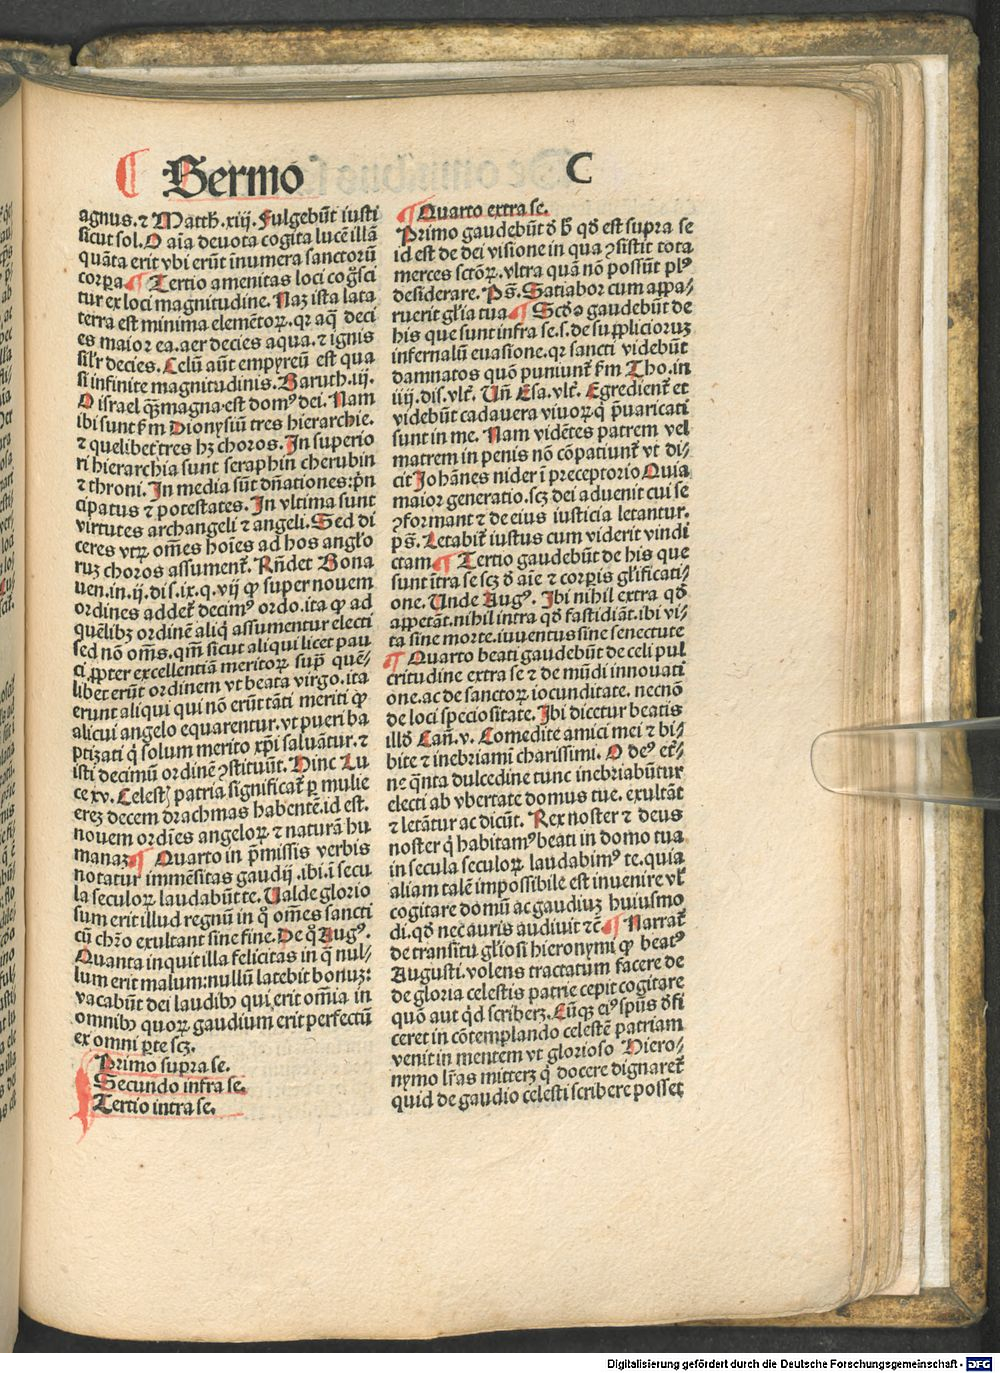 Sermo
C
agnus. ⁊ Matth̄. xiij. Fulgebūt iusti
sicut sol. O aīa deuota cogita lucē illā
quāta erit vbi erūt īnumera sanctorū
corꝑa. ¶ Tertio amenitas loci cog̃sci
tur ex loci magnitudine. Naȝ ista lata
terra est minima elemētoꝝ. qꝛ aq̄ deci
es maior ea. aer decies aqua. ⁊ ignis
sil'r decies. Celū aūt empyreū est qua
si infinite magnitudinis. Baruth. iij.
O israel q̄ȝ magna est domꝰ dei. Nam
ibi sunt f̄m Dionysiū tres hierarchie.
⁊ quelibet tres hȝ choros. In superio
ri hierarchia sunt seraphin cherubin
⁊ throni. In media sūt dn̄ationes: p̄n
cipatus ⁊ potestates. In vltima sunt
virtutes archangeli ⁊ angeli. Sed di
ceres vtꝝ om̄es hoīes ad hos angl'o
ruȝ choros assument̄. Rn̄det Bona
uen. in. ij. dis. ix. q. vij ꝙ super nouem
ordines addet̄ decimꝰ ordo. ita ꝙ ad
quēlibȝ ordinē aliq̇ assumentur electi
sed nō om̄s. qm̄ sicut aliqui licet pau
ci ꝓpter excellentiā meritoꝝ sup̄ quē⸗
libet erūt ordinem vt beata virgo. ita
erunt aliqui qui nō erūt tāti meriti ꝙ
alicui angelo equarentur. vt pueri ba
ptizati q̇ solum merito xp̄i saluātur. ⁊
isti decimū ordinē ꝯstituūt. Hinc Lu
ce xv. Celestꝭ patria significat̄ ꝑ mulie
reȝ decem drachmas habentē. id est.
nouem ordīes angeloꝝ ⁊ naturā hu
manaȝ ¶ Quarto in p̄missis verbis
notatur immēsitas gaudij. ibi. ī secu
la seculoꝝ laudabūt te. Ualde glorio
sum erit illud regnū in q̊ om̄es sancti
cū chr̄o exultant sine fine. De q̊ Augꝰ.
Quanta inquit illa felicitas in q̄ nul⸗
lum erit malum: nullū latebit bonuȝ:
vacabūt dei laudibꝰ qui erit om̄ia in
omnibꝰ quoꝝ gaudium erit perfectū
ex omni ꝑte scȝ.
Primo supra se.
Secundo infra se.
Tertio intra se.
¶ Quarto extra se.
Primo gaudebūt d̄ h̄ qd̄ est supra se
id est de dei visione in qua ꝯsistit tota
merces sctōꝝ. vltra quā nō possūt plꝰ
desiderare. Ps̄. Satiabor cum appa⸗
ruerit gl'ia tua ¶ Scd̄o gaudebūt de
his que sunt infra se. s. de supplicioruȝ
infernaliū euasione. qꝛ sancti videbūt
damnatos quō puniunt̄ f̄m Tho. in
iiij. dis. vlt̄. Un̄ Esa. vlt̄. Egredient̄ et
videbūt cadauera viuoꝝ q̇ p̄uaricati
sunt in me. Nam vidētes patrem vel
matrem in penis nō cōpatiunt̄ vt di⸗
cit Johānes nider ī preceptorio Quia
maior generatio. scȝ dei aduenit cui se
ꝯformant ⁊ de eius iusticia letantur.
ps̄. Letabit̄ iustus cum viderit vindi
ctam ¶ Tertio gaudebūt de his que
sunt ītra se scȝ d̄ aīe ⁊ corꝑis gl'ificati⸗
one. Unde Augꝰ. Ibi nihil extra qd̄
appetāt. nihil intra qd̄ fastidiāt. ibi vi⸗
ta sine morte. iuuentus sine senectute
¶ Quarto beati gaudebūt de celi pul
critudine extra se ⁊ de mūdi innouati
one. ac de sanctoꝝ iocunditate. necnō
de loci speciositate. Ibi dicetur beatis
illd̄ Cañ. v. Comedite amici mei ⁊ bi⸗
bite ⁊ inebriamī charissimi. O deꝰ et̄r⸗
ne q̄nta dulcedine tunc inebriabūtur
electi ab vbertate domus tue. exultāt
⁊ letātur ac dicūt. Rex noster ⁊ deus
noster q̇ habitamꝰ beati in domo tua
in secula seculoꝝ laudabimꝰ te. quia
aliam talē impossibile est inuenire vl'
cogitare domū ac gaudiuȝ huiusmo
di. qd̄ nec auris audiuit ⁊c̄ ¶ Narrat̄
de transitu gl'iosi hieronymi ꝙ beatꝰ
Augusti. volens tractatum facere de
de gloria celestis patrie cepit cogitare
quō aut qd̄ scriberȝ. Cūqȝ eiꝰ spūs d̄fi
ceret in cōtemplando celestē patriam
venit in mentem vt glorioso Hiero⸗
nymo lr̄as mitterȝ q̇ docere dignaret̄
quid de gaudio celesti scribere posset
Digitalisierung gefördert durch die Deutsche Forschungsgemeinschaft - DFG